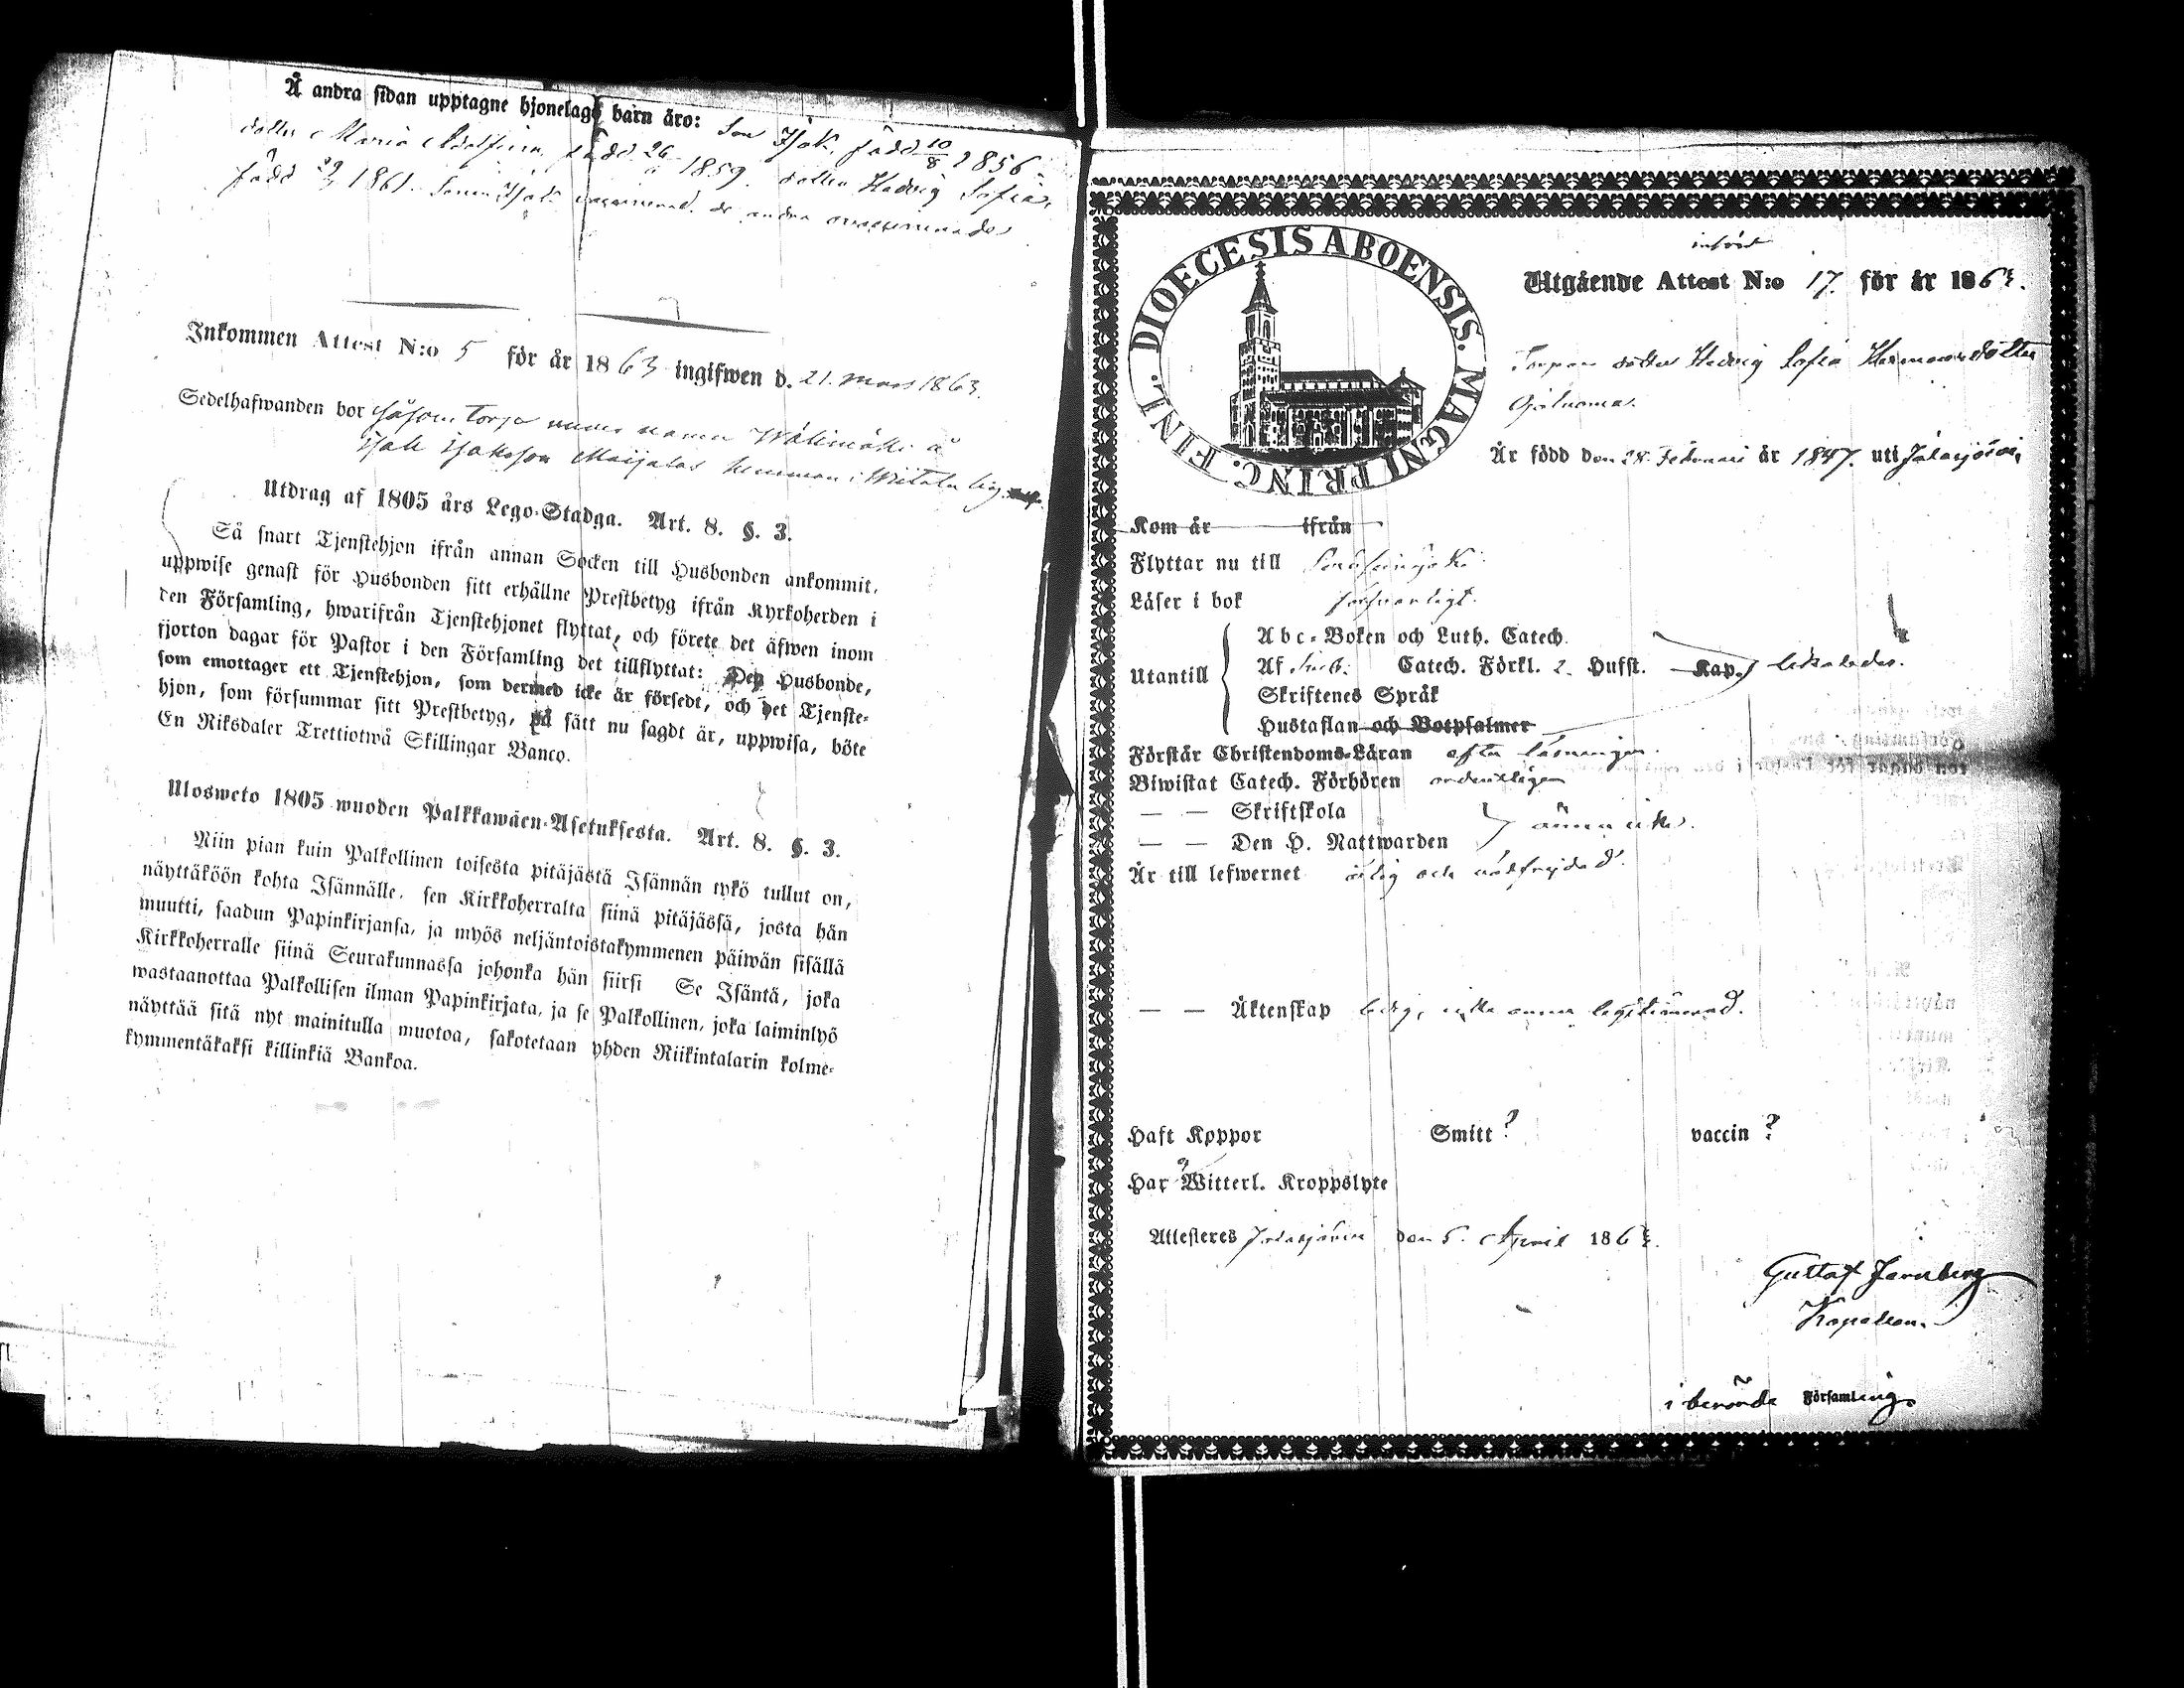 Å andra sidan upptagne hjonelags barn äro: Son Isak, född 10/8 1856.
dotter Maria Adolfina född 26 1859. dotter Hedvig Sofia,
född 29 1861. Sonen Isak vaccinerad. de andra ovaccinerade
Inkommen Attest N:o 5 för år 1863 ingifwen d. 21. mars 1863.
Sedelhafwanden bor såsom torpare å
Isak Isaksson Maijalas hemman i
Utdrag af 1805 års Lego-Stadga. Art. 8. §. 3.
Så snart Tjenstehjon ifrån annan Socken till Husbonden ankommit,
uppwise genast för Husbonden sitt erhållne Prestbetyg ifrån Kyrkoherden i
den Församling, hwarifrån Tjenstehjonet flyttat, och förete det äfwen inom
fjorton dagar för Pastor i den Församling det tillflyttat: Den Husbonde,
som emottager ett Tjenstehjon, som dermed icke är försedt, och det Tjenste-
hjon, som försummar sitt Prestbetyg, på sätt nu sagdt är, uppwisa, böte
En Riksdaler Trettiotwå Skillingar Banco.
Ulosweto 1805 wuoden Palkkawäen-Asetuksesta. Art. 8. §. 3.
Niin pian kuin Palkollinen toisesta pitäjästä Isännän tykö tullut on,
näyttäköön kohta Isännälle, sen Kirkkoherralta siinä pitäjässä, josta hän
muutti, saadun Papinkirjansa, ja myös neljäntoistakymmenen päiwän sisällä
Kirkkoherralle siinä Seurakunnassa johonka hän siirsi Se Isäntä, joka
wastaanottaa Palkollisen ilman Papinkirjata, ja se Palkollinen, joka laiminlyö
näyttää sitä nyt mainitulla muotoa, sakotetaan yhden Riikintalarin kolme-
kymmentäkaksi killinkiä Bankoa.
DIOECESIS ABOENSIS. MAGNI PRINC. FINL.
införd
Utgående Attest N:o 17. för år 186
Torpare dotter Hedvig Sofia Hermansdotter
Är född den 28. Februari år 1847. uti Jalasjärvi,
Kom år ifrån
Flyttar nu till
Läser i bok försvarligt.
Abc-Boken och Luth. Catech.
Utantill Af Catech. Förkl. 2. Hufst. Kap.
Skriftenes Språk
Hustaflan och Botpsalmer
Förstår Christendoms-Läran efter läsningen.
Biwistat Catech. Förhören ordentligen
— — Skriftskola
— — Den H. Nattwarden ännu icke.
Är till lefwernet ärlig och välfrejdad.
— — Äktenskap ledig, icke ännu legitimerad.
Haft Koppor Smitt? vaccin?
Har Witterl. Kroppslyte
Attesteres Jalasjärvi den 5. April 186
Gustaf Jarnberg
Kapellan.
i berörde Församling.